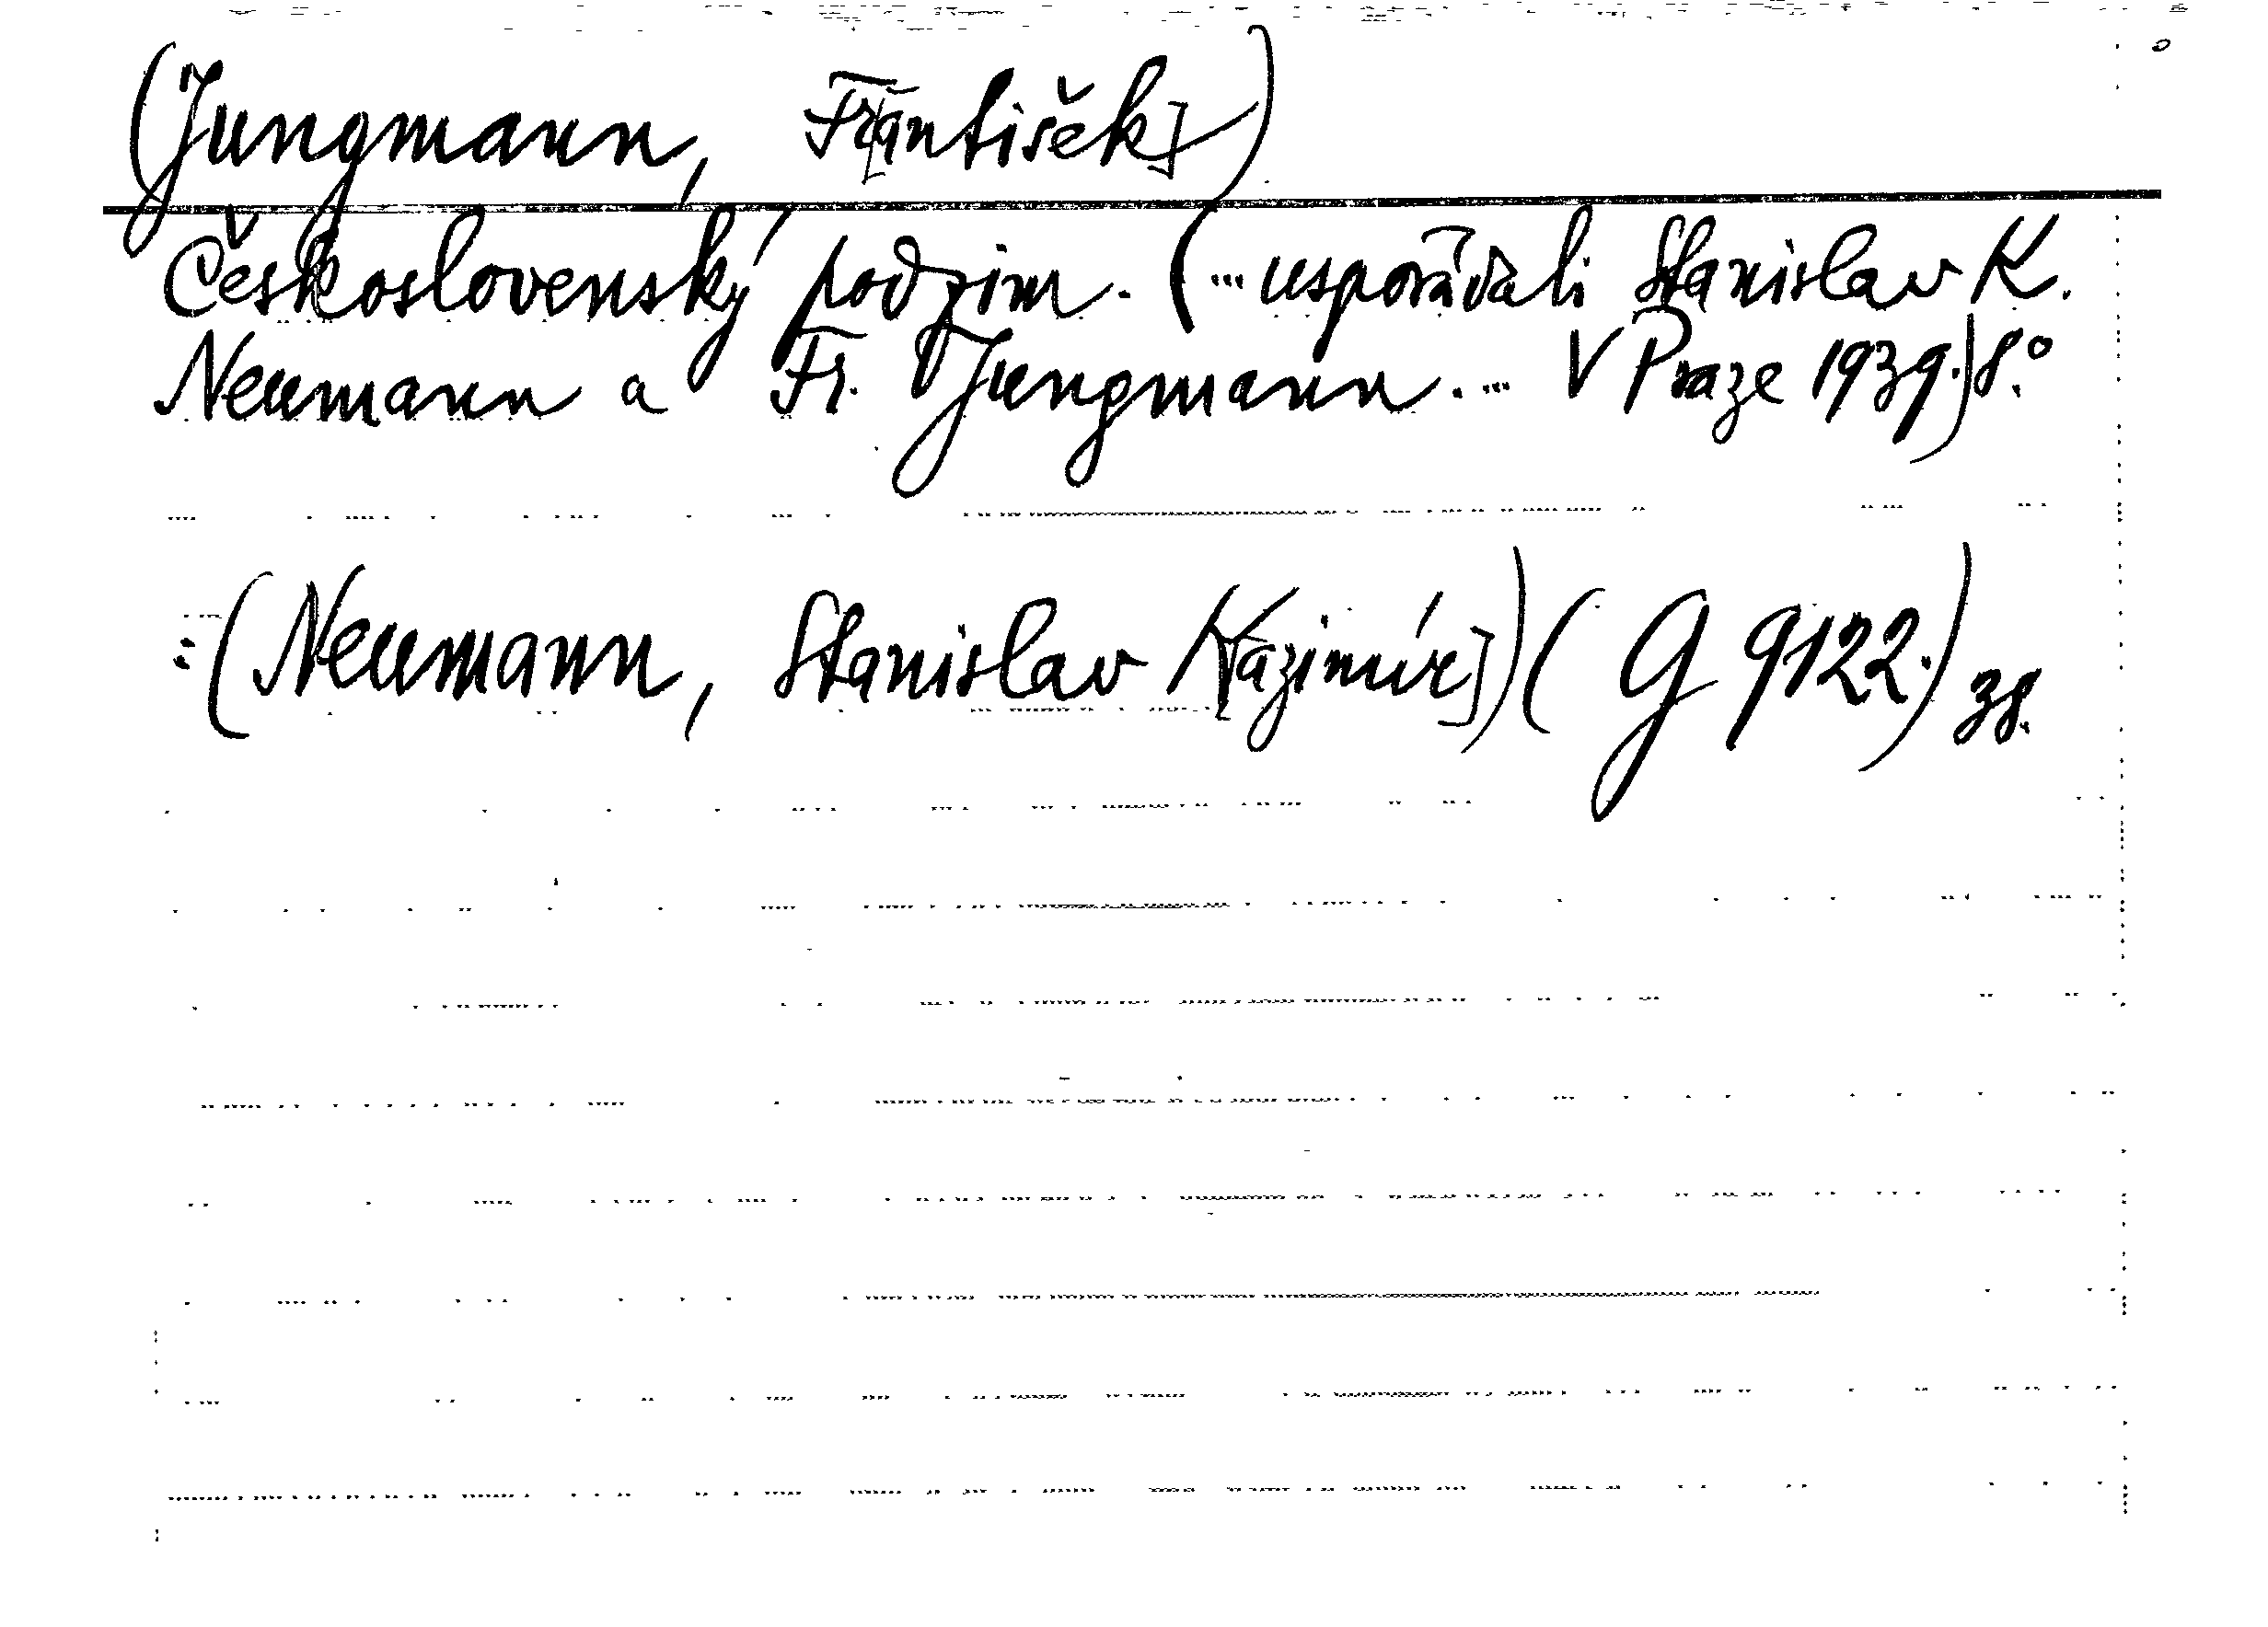 (Jungmann, Fr[antišek])
Československý podzim. (... uspořádali Stanislav K.
Neumann a Fr. Jungmann. ... V Praze 1939.) 8.°
:(Neumann, Stanislav K[azimír]) (G 9122.) 38.